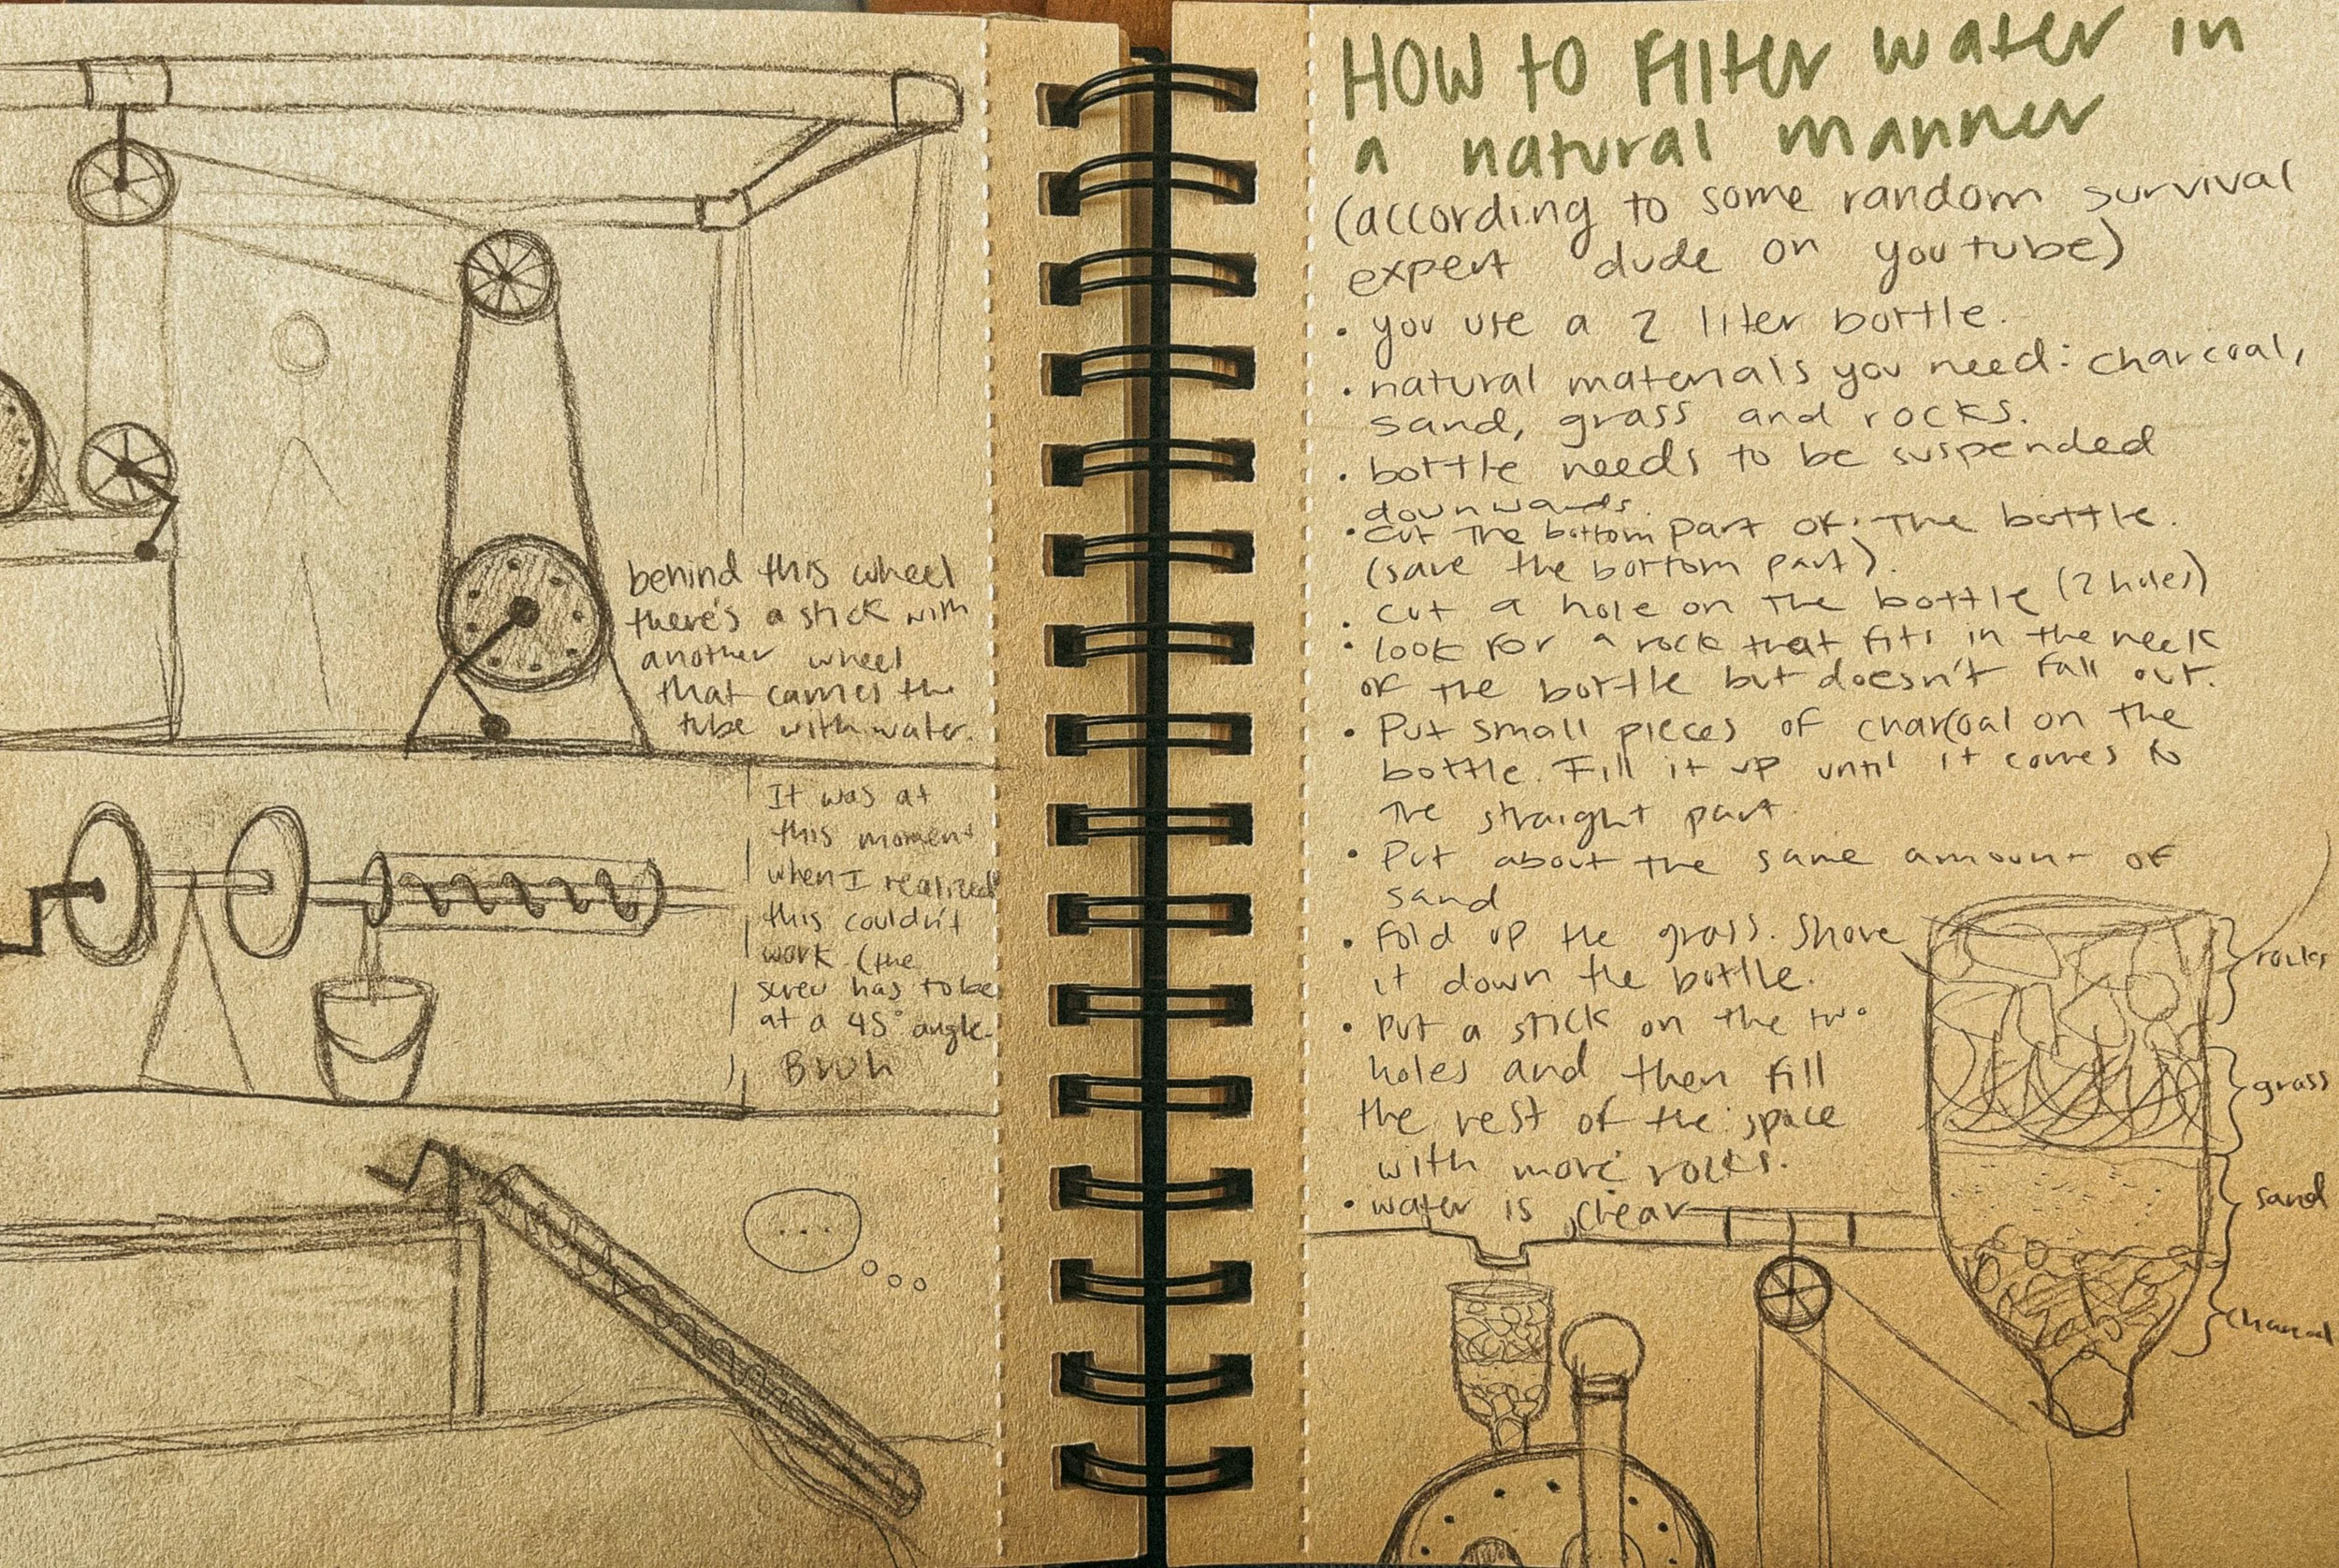 behind this wheel
there's a stick with
another wheel
that carries the
tube with water.
It was at
this moment
when I realized
this couldn't
work (the
screw has to be
at a 45° angle.
Bruh
...
HOW to Filter water in
a natural manner
(according to some random survival
expert dude on youtube)
• you use a 2 liter bottle.
• natural materials you need: charcoal,
sand, grass and rocks.
• bottle needs to be suspended
downwards.
• cut the bottom part of the bottle.
(save the bottom part).
• cut a hole on the bottle (2 holes)
• look for a rock that fits in the neck
of the bottle but doesn't fall out.
• Put small pieces of charcoal on the
bottle. Fill it up until it comes to
the straight part.
• Put about the same amount of
sand
• Fold up the grass. Shove
it down the bottle.
• Put a stick on the two
holes and then fill
the rest of the space
with more rocks.
• water is clear
rocks
grass
sand
charcoal